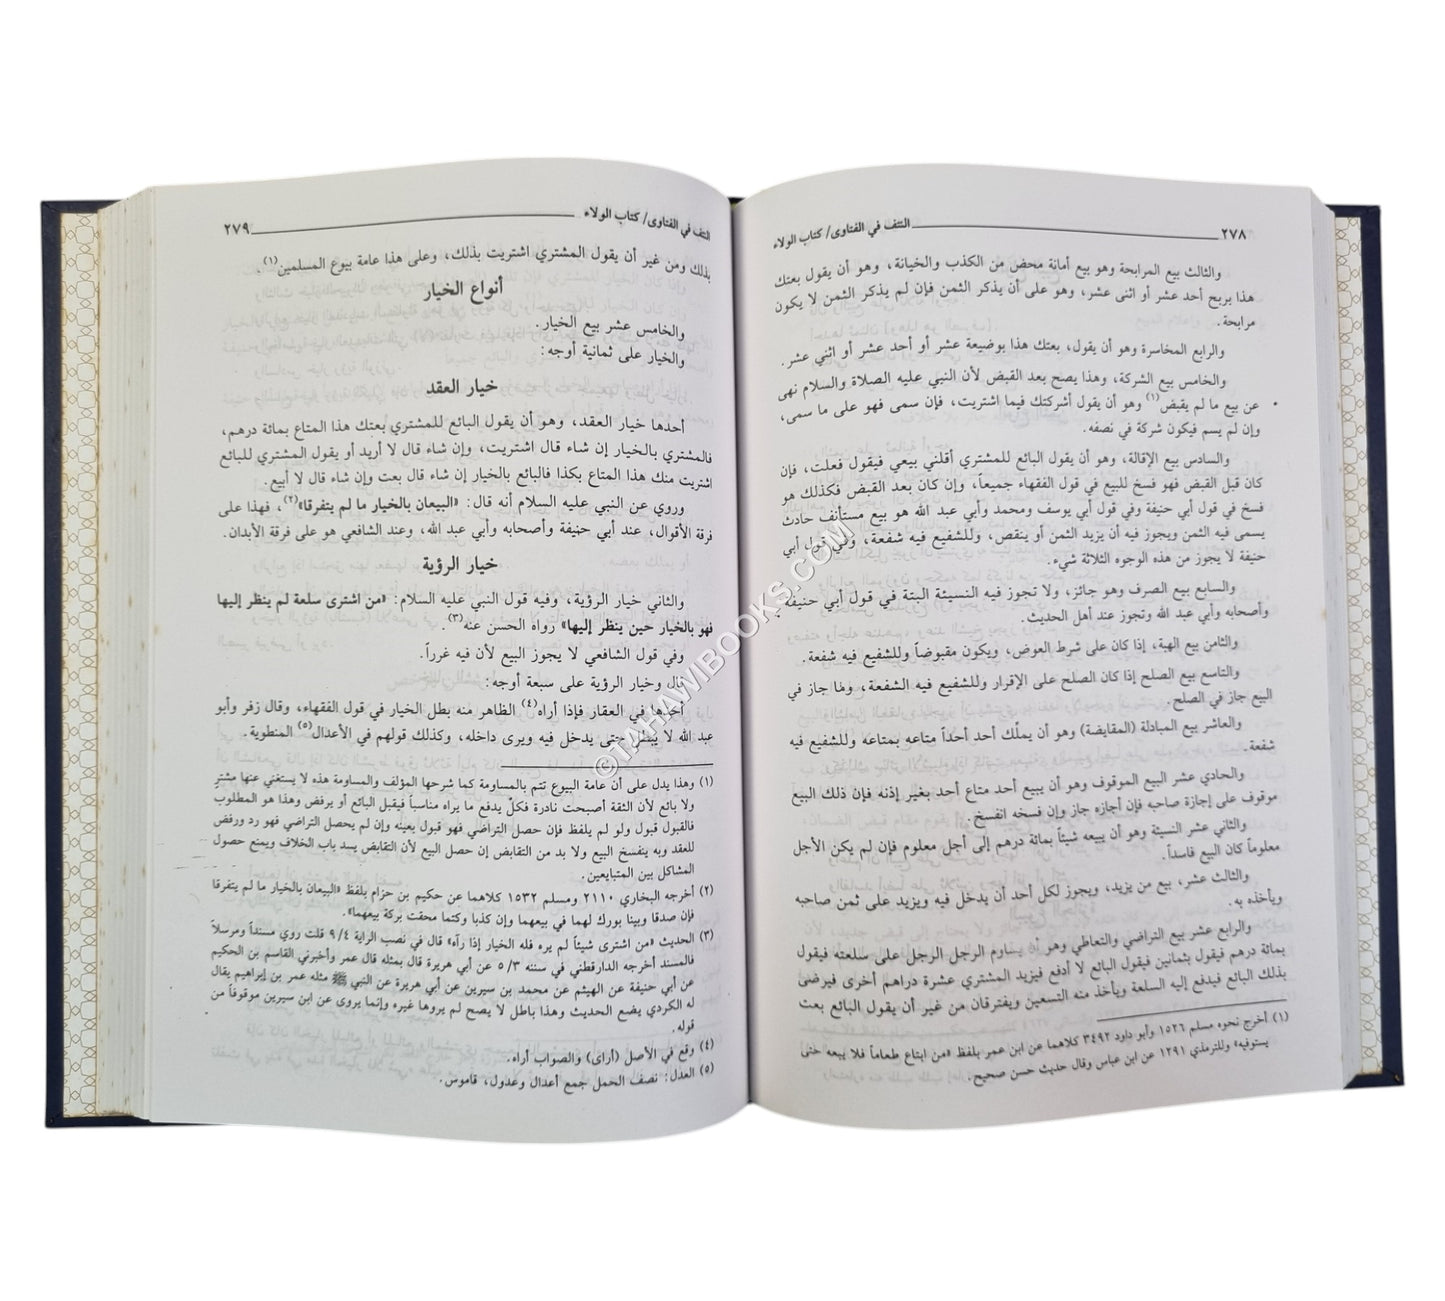 ٢٧٨ النتف في الفتاوى/ كتاب الولاء
والثالث بيع المرابحة وهو بيع أمانة محض من الكذب والخيانة، وهو أن يقول بعتك
هذا بربح أحد عشر أو اثنى عشر، وهو على أن يذكر الثمن فإن لم يذكر الثمن لا يكون
مرابحة.
والرابع المخاسرة وهو أن يقول، بعتك هذا بوضيعة عشر أو أحد عشر أو اثني عشر.
والخامس بيع الشركة، وهذا يصح بعد القبض لأن النبي عليه الصلاة والسلام نهى
عن بيع ما لم يقبض(١) وهو أن يقول أشركتك فيما اشتريت، فإن سمى فهو على ما سمى،
وإن لم يسم فيكون شركة في نصفه.
والسادس بيع الإقالة، وهو أن يقول البائع للمشتري أقلني بيعي فيقول فعلت، فإن
كان قبل القبض فهو فسخ للبيع في قول الفقهاء جميعاً، وإن كان بعد القبض فكذلك هو
فسخ في قول أبي حنيفة وفي قول أبي يوسف ومحمد وأبي عبد الله هو بيع مستأنف حادث
يسمى فيه الثمن ويجوز فيه أن يزيد الثمن أو ينقص، وللشفيع فيه شفعة، وفي قول أبي
حنيفة لا يجوز من هذه الوجوه الثلاثة شيء.
والسابع بيع الصرف وهو جائز، ولا تجوز فيه النسيئة البتة في قول أبي حنيفة
وأصحابه وأبي عبد الله وتجوز عند أهل الحديث.
والثامن بيع الهبة، إذا كان على شرط العوض، ويكون مقبوضاً وللشفيع فيه شفعة.
والتاسع بيع الصلح إذا كان الصلح على الإقرار وللشفيع فيه الشفعة، ولما جاز في
البيع جاز في الصلح.
والعاشر بيع المبادلة (المقايضة) وهو أن يملّك أحد أحداً متاعه بمتاعه وللشفيع فيه
شفعة.
والحادي عشر البيع الموقوف وهو أن يبيع أحد متاع أحد بغير إذنه فإن ذلك البيع
موقوف على إجازة صاحبه فإن أجازه جاز وإن فسخه انفسخ.
والثاني عشر النسيئة وهو أن يبيعه شيئاً بمائة درهم إلى أجل معلوم فإن لم يكن الأجل
معلوماً كان البيع فاسداً.
والثالث عشر، بيع من يزيد، ويجوز لكل أحد أن يدخل فيه ويزيد على ثمن صاحبه
ويأخذه به.
والرابع عشر بيع التراضي والتعاطي وهو أن يساوم الرجل الرجل على سلعته فيقول
بمائة درهم فيقول بثمانين فيقول البائع لا أدفع فيزيد المشتري عشرة دراهم أخرى فيرضى
بذلك البائع فيدفع إليه السلعة ويأخذ منه التسعين ويفترقان من غير أن يقول البائع بعت
(١) أخرج نحوه مسلم ١٥٢٦ وأبو داود ٣٤٩٢ كلاهما عن ابن عمر بلفظ «من ابتاع طعاماً فلا يبعه حتى
يستوفيه» وللترمذي ١٢٩١ عن ابن عباس وقال حديث حسن صحيح.
النتف في الفتاوى/ كتاب الولاء ٢٧٩
بذلك ومن غير أن يقول المشتري اشتريت بذلك، وعلى هذا عامة بيوع المسلمين(١).
أنواع الخيار
والخامس عشر بيع الخيار.
والخيار على ثمانية أوجه:
خيار العقد
أحدها خيار العقد، وهو أن يقول البائع للمشتري بعتك هذا المتاع بمائة درهم،
فالمشتري بالخيار إن شاء قال اشتريت، وإن شاء قال لا أريد أو يقول المشتري للبائع
اشتريت منك هذا المتاع بكذا فالبائع بالخيار إن شاء قال بعت وإن شاء قال لا أبيع.
وروي عن النبي عليه السلام أنه قال: «البيعان بالخيار ما لم يتفرقا»(٢)، فهذا على
فرقة الأقوال، عند أبي حنيفة وأصحابه وأبي عبد الله، وعند الشافعي هو على فرقة الأبدان.
خيار الرؤية
والثاني خيار الرؤية، وفيه قول النبي عليه السلام: «من اشترى سلعة لم ينظر إليها
فهو بالخيار حين ينظر إليها» رواه الحسن عنه(٣).
وفي قول الشافعي لا يجوز البيع لأن فيه غرراً.
قال وخيار الرؤية على سبعة أوجه:
أحدها في العقار فإذا أراه(٤) الظاهر منه بطل الخيار في قول الفقهاء، وقال زفر وأبو
عبد الله لا يبطل حتى يدخل فيه ويرى داخله، وكذلك قولهم في الأعدال(٥) المنطوية.
(١) وهذا يدل على أن عامة البيوع تتم بالمساومة كما شرحها المؤلف والمساومة هذه لا يستغني عنها مشترٍ
ولا بائع لأن الثقة أصبحت نادرة فكلّ يدفع ما يراه مناسباً فيقبل البائع أو يرفض وهذا هو المطلوب
فالقبول قبول ولو لم يلفظ فإن حصل التراضي فهو قبول بعينه وإن لم يحصل التراضي فهو رد ورفض
للعقد وبه ينفسخ البيع ولا بد من التقابض إن حصل البيع لأن التقابض يسد باب الخلاف ويمنع حصول
المشاكل بين المتبايعين.
(٢) أخرجه البخاري ٢١١٠ ومسلم ١٥٣٢ كلاهما عن حكيم بن حزام بلفظ «البيعان بالخيار ما لم يتفرقا
فإن صدقا وبينا بورك لهما في بيعهما وإن كذبا وكتما محقت بركة بيعهما».
(٣) الحديث «من اشترى شيئاً لم يره فله الخيار إذا رآه» قال في نصب الراية ٩/٤ قلت روي مسنداً ومرسلاً
فالمسند أخرجه الدارقطني في سننه ٥/٣ عن أبي هريرة قال بمثله قال عمر وأخبرني القاسم بن الحكيم
عن أبي حنيفة عن الهيثم عن محمد بن سيرين عن أبي هريرة عن النبي ﷺ مثله عمر بن إبراهيم يقال
له الكردي يضع الحديث وهذا باطل لا يصح لم يروها غيره وإنما يروى عن ابن سيرين موقوفاً من
قوله.
(٤) وقع في الأصل (أراى) والصواب أراه.
(٥) العدل: نصف الحمل جمع أعدال وعدول، قاموس.
©TAHAWIBOOKS.COM